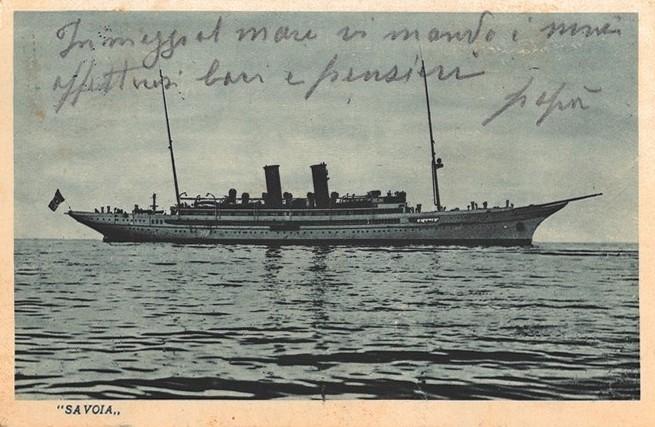 In mezzo al mare vi mando i miei
affettuosi baci e pensieri
papà
"SAVOIA„